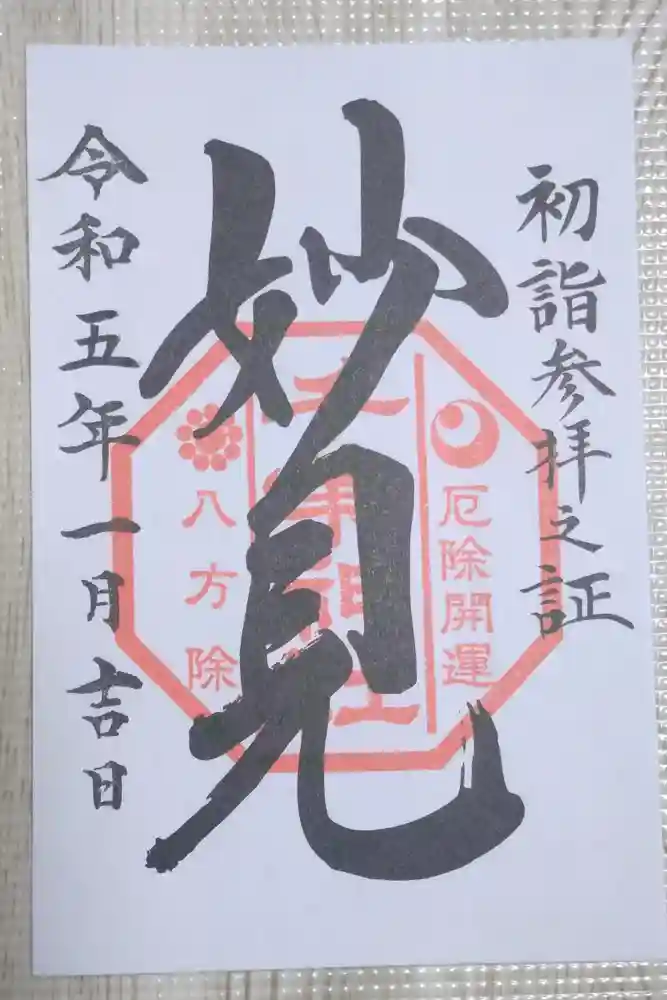 初詣参拝之証
厄除開運
妙見
八方除
令和五年一月吉日